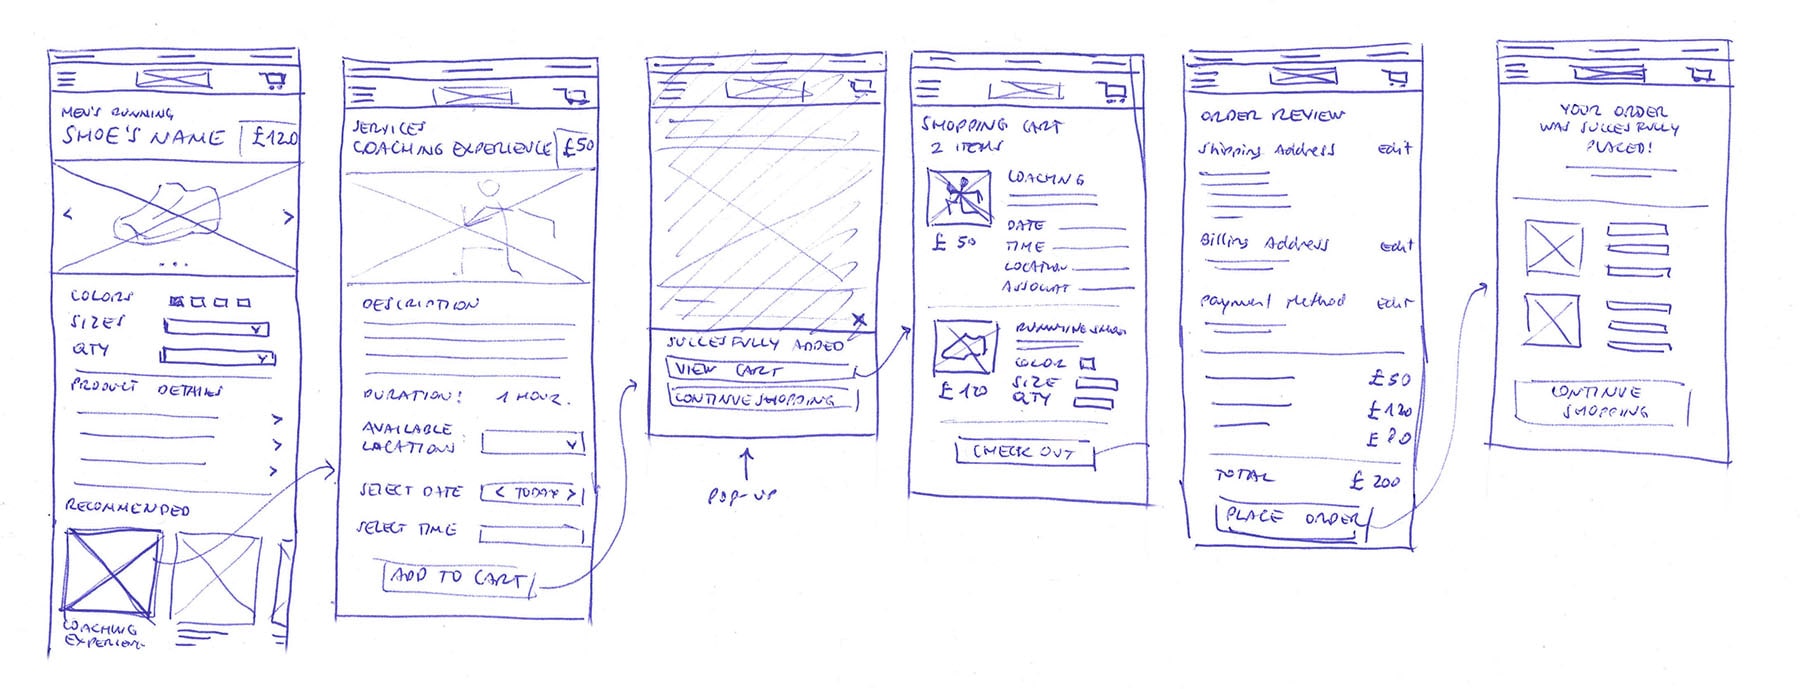 MEN'S RUNNING
SHOE'S NAME £120
< >
COLORS
SIZES
QTY
PRODUCT DETAILS
>
>
>
RECOMMENDED
COACHING
EXPERIENCE
SERVICES
COACHING EXPERIENCE £50
DESCRIPTION
DURATION: 1 HOUR.
AVAILABLE
LOCATIONS
SELECT DATE < TODAY >
SELECT TIME
ADD TO CART
X
SUCCESFULLY ADDED
VIEW CART
CONTINUE SHOPPING
POP-UP
SHOPPING CART
2 ITEMS
COACHING
DATE
TIME
LOCATION
£ 50
RUNNING SHOE
COLOR
SIZE
QTY
£ 120
CHECK OUT
ORDER REVIEW
Shipping Address Edit
Billing Address Edit
Payment Method Edit
£50
£120
TOTAL £ 200
PLACE ORDER
YOUR ORDER
WAS SUCCESFULLY
PLACED!
CONTINUE
SHOPPING